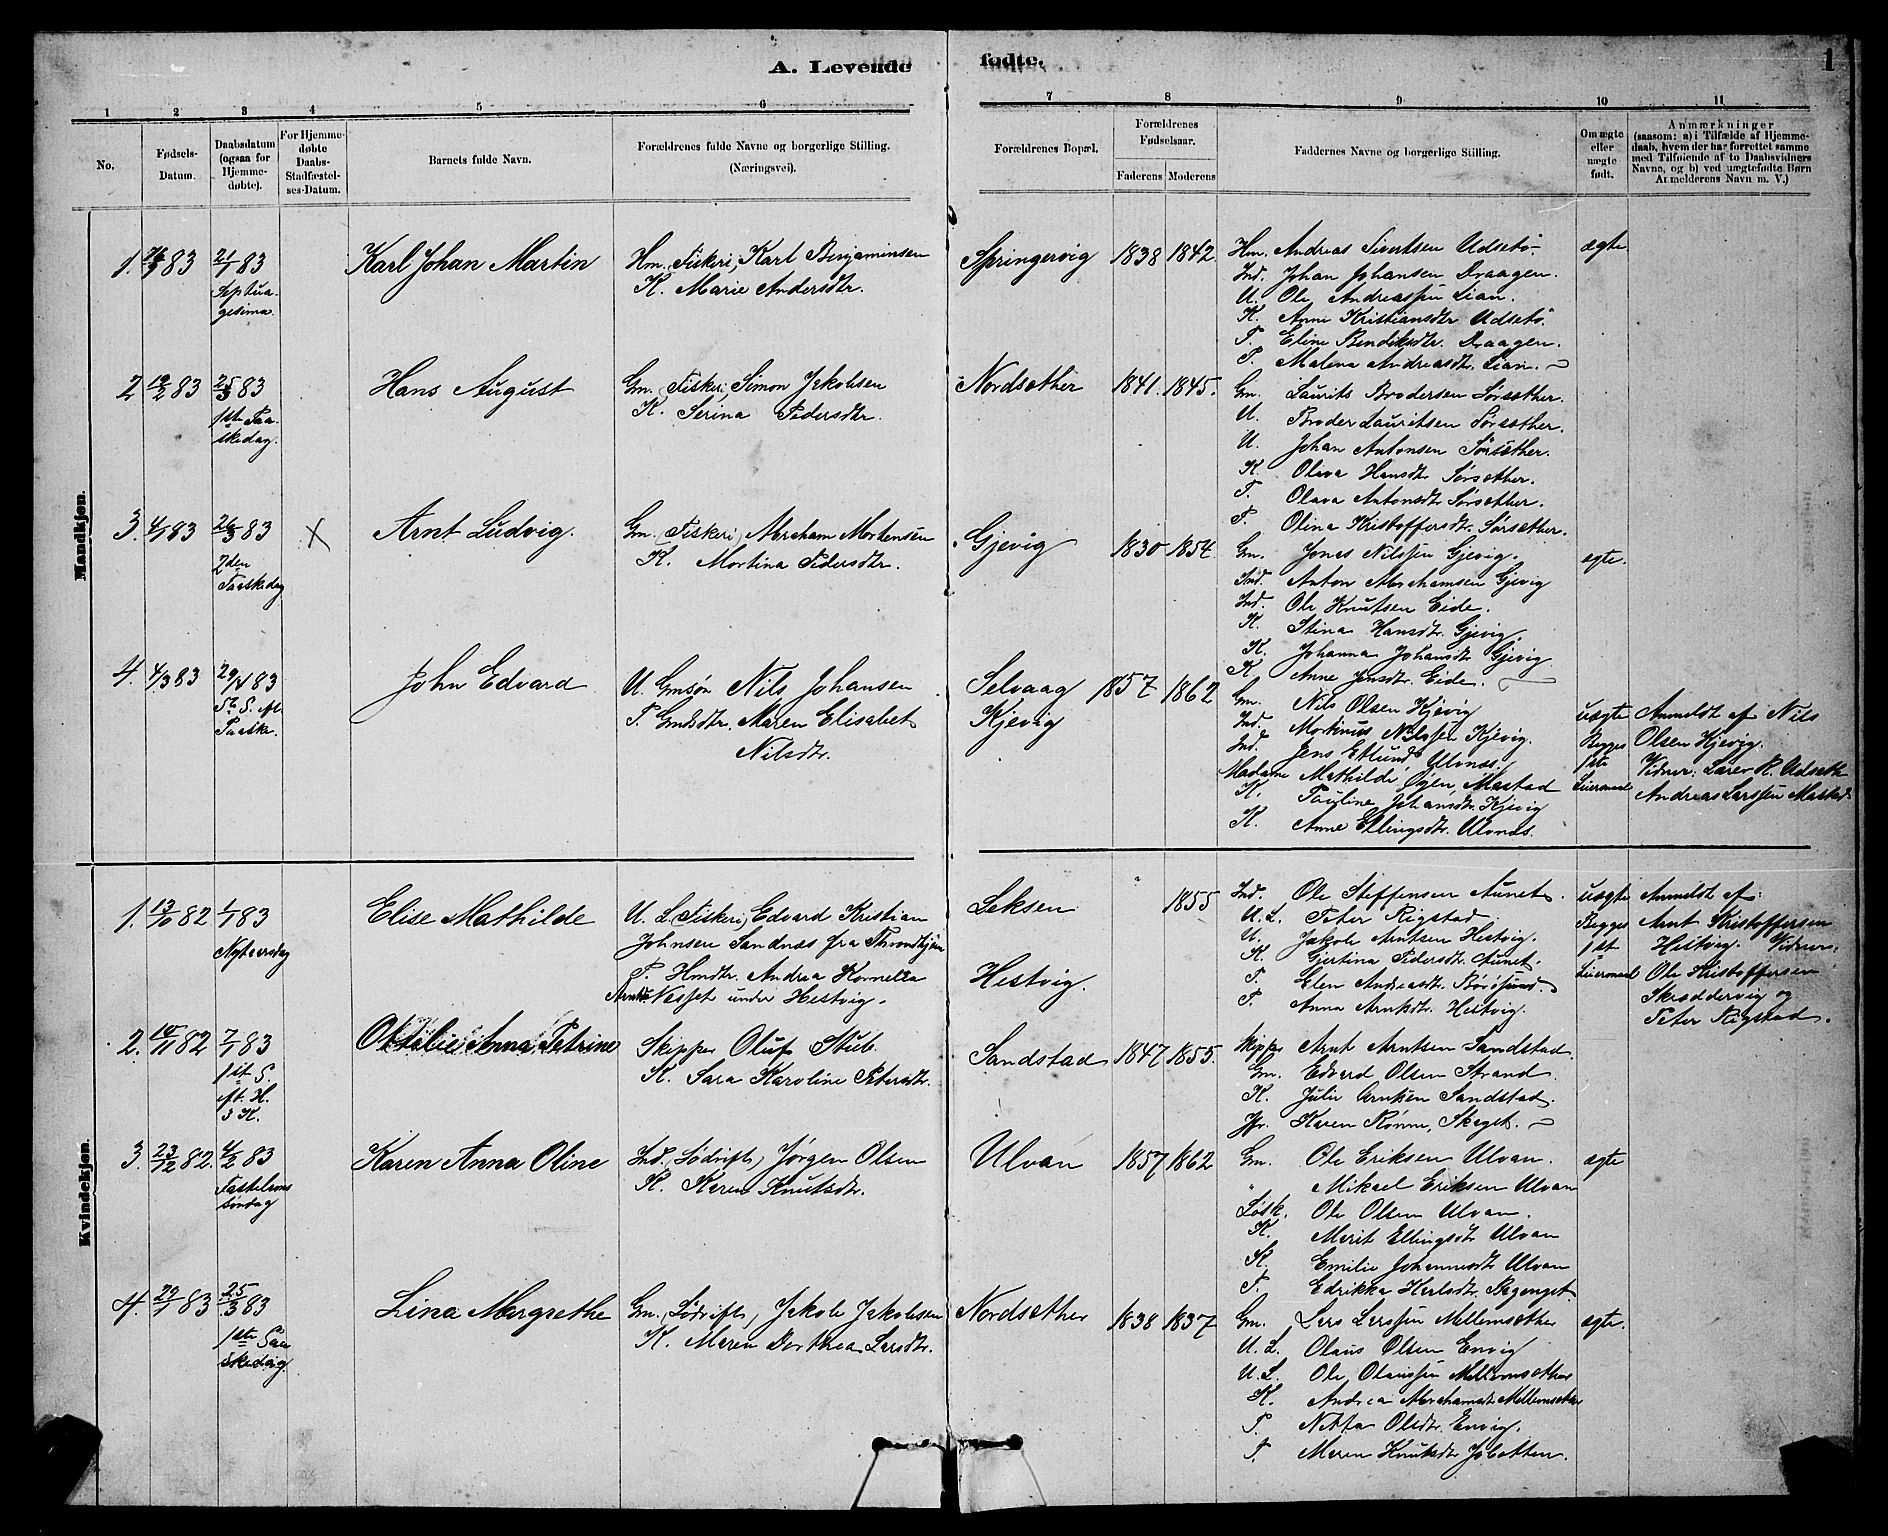 A. Levende fødte.
1
1 2 3 4 5 6 7 8 9 10 11
No.
Fødsels-Datum.
Daabsdatum (ogsaa for Hjemme-døbte).
For Hjemme-døbte Daabs-Stadfæstel-ses-Datum.
Barnets fulde Navn.
Forældrenes fulde Navne og borgerlige Stilling.
(Næringsvei).
Forældrenes Bopæl.
Forældrenes Fødselsaar.
Faderens Moderens
Faddernes Navne og borgerlige Stilling.
Om ægte eller uægte født.
Anmærkninger
(saasom: a) i Tilfælde af Hjemme-
daab, hvem der har forrettet samme
med Tilføiende af to Daabsvidners
Navne, og b) ved uægtefødte Børn
Anmelderens Navn m. V.)
Mandkjøn.
1. 83
21/1 83
Septua-
gesima.
Karl Johan Martin
Hm. (Fiskeri) Karl Benjaminsen
K. Marie Andersdtr.
Springervig
1838 1842.
Hm. Andreas Sivertsen Udsetø.
Ind. Johan Johansen Draagen.
U. Ole Andreassen Lian.
K. Anne Kristiansdtr Udsetø.
P. Eline Bendiksdtr. Draagen.
P. Malena Andreasdtr. Lian.
ægte
2 12/2 83
25/3 83
1ste Paa-
skedag.
Hans August
Gm. (Fiskeri) Simon Jakobsen
K. Serina Pedersdtr.
Nordsæther
1841. 1845.
Gm. Laurits Brodersen Sørsæther.
U. Broder Lauritsen Sørsæther.
U. Johan Antonsen Sørsæther.
K. Olava Hansdtr Sørsæther.
P. Olava Antonsdtr Sørsæther.
P. Olina Kristoffersdtr. Sørsæther.
3. 4/1 83
26/3 83
2den
Paaskedag
X
Arnt Ludvig.
Gm. (Fiskeri) Abraham Mortensen
K. Mortina Pedersdtr.
Gjevig
1830 1854.
Gm. Jonas Nilssen Gjevig.
Ind. Anton Abrahamsen Gjevig
Ind. Ole Knutsen Eide.
K. Stina Hansdtr. Gjevig.
K. Johanna Johansdtr Gjevig
K. Anne Jensdtr. Eide.
ægte.
4. 4/3 83
29/4 83
5te S. eft.
Paaske.
John Edvard
U. Gmsøn Nils Johansen
P. Gmdtr. Maren Elisabet
Nilsdtr.
Selvaag
Kjevig
1857 1862
Gm. Nils Olsen Kjevig
Ind. Martinus Nilssen Kjevig.
Ind. Jens Edlund Ulvnæs.
Madame Mathilde Øyen, Mastad
K. Pauline Johansdtr. Kjevig
K. Anne Ellingsdtr. Ulvnæs.
uægte
Begges
1ste
Leiermaal
Anmeldt af Nils
Olsen Kjevig.
Vidner: Lærer R. Udseth
Andreas Larssen Mastad
Kvindekjøn.
1. 13/10 82
1/1 83
Nytaarsdag
Elise Mathilde
U. L. (Fiskeri) Edvard Kristian
Johnsen Sandnæs fra Throndhjem
P. Hmdtr. Andrea Kornelia
Arntdtr. Næsset under Hestvig.
Leksen
Hestvig.
1855
Ind. Ole Steffensen Aunet.
U. L. Peter Rigstad.
U. Jakob Arntsen Hestvig.
K. Gjertina Pedersdtr. Aunet.
P. Elen Andreasdtr. Børøsund.
P. Anna Arntsdtr. Hestvig.
uægte
Begges
1st
Leiermaal
Anmeldt af:
Arnt Kristoffersen
Hestvig. Vidner:
Ole Kristoffersen
Skreddervig og
Peter Rigstad.
2. 14/11 82
7/1 83
1st S.
eft. H.
3 K.
Ottilie Anna Petrine
Skipper Oluf Stub.
K. Sara Karoline Petersdtr.
Sandstad
1847 1855.
Skipper Arnt Arntsen Sandstad.
Gm. Edvard Olsen Strand.
K. Julie Arntsen Sandstad.
Jfr. Karen Rønne, Skaget.
3. 23/12 82.
4/2 83
Fastelavns
søndag
Karen Anna Oline
Ind. (Lødrift) Jørgen Olsen
K. Karen Knutsdtr.
Ulvan
1857 1862
Gm. Ole Eriksen Ulvan.
" Mikael Eriksen Ulvan
Løsk. Ole Olsen Ulvan.
K. Merit Ellingsdtr Ulvan
K. Emilie Johannesdtr Ulvan
P. Edrikka
ægte
4. 29/1 83
25/3 83
1ste Paa
skedag
Lina Margrethe
Gm. (Lødrift) Jakob Jakobsen
K. Maren Dorthea Larsdtr.
Nordsæther
1838 1837
Gm. Lars Larssen Mellemsæther
U. L. Olaus Olsen Envig
U. L. Ole Olaussen Mellemsæther
K. Andrea Abrahamsdtr Mellemsæther
P. Nikka Olsdtr. Envig.
P. Maren Knutsdtr
ægte.